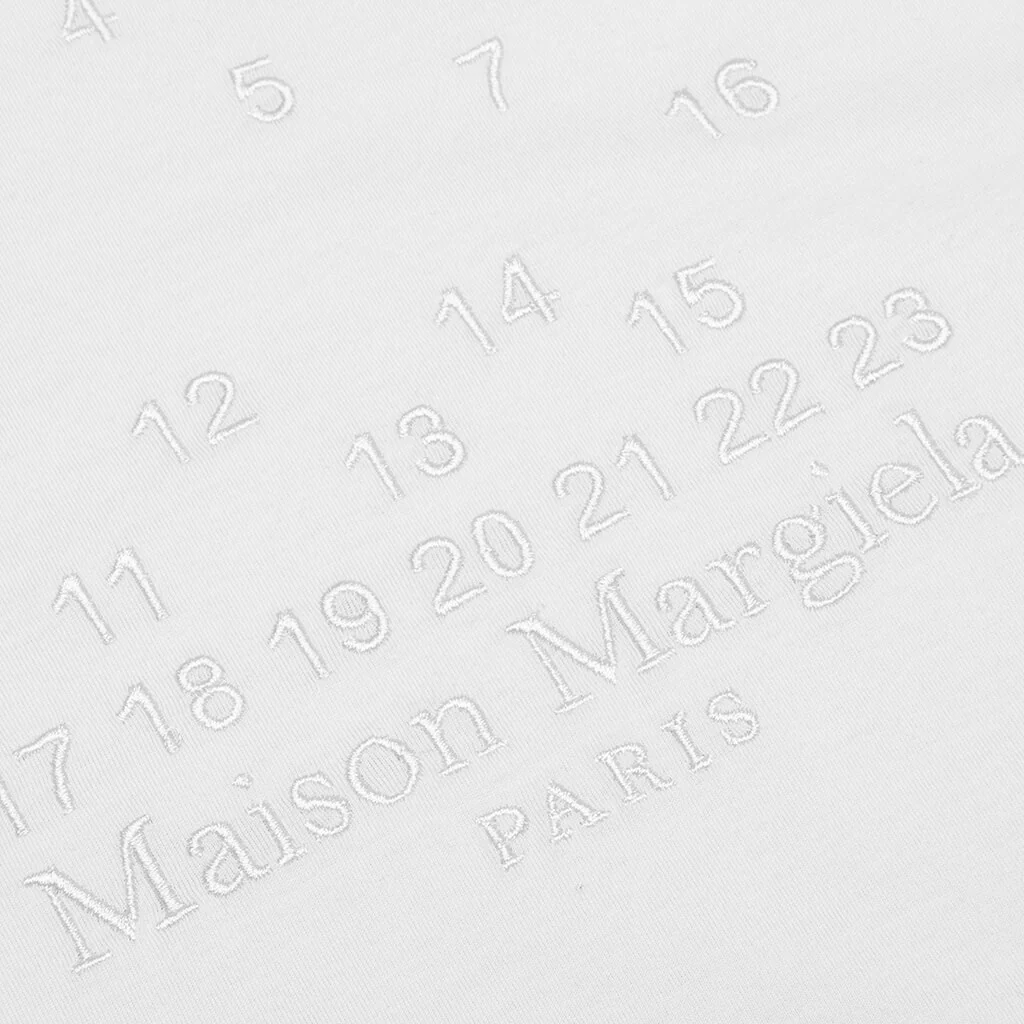 4
5
7
16
12
14
11 13 15
17 18 19 20 21 22 23
Maison Margiela
PARIS